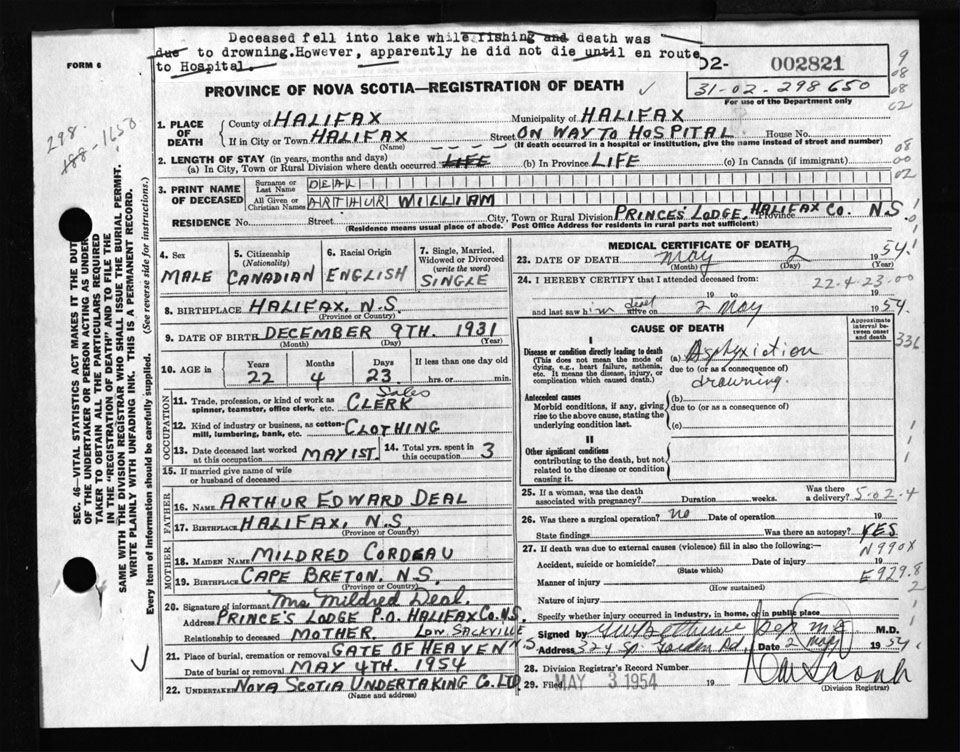 Deceased fell into lake while fishing and death was
due to drowning. However, apparently he did not die until en route
to Hospital.
FORM 6
02- 002821
31-02-298650
For use of the Department only
9
08
08
02
PROVINCE OF NOVA SCOTIA—REGISTRATION OF DEATH
298.
188-1650
1. PLACE OF DEATH
County of HALIFAX Municipality of HALIFAX
If in City or Town HALIFAX Street ON WAY TO HOSPITAL House No.
(Name) (If death occurred in a hospital or institution, give the name instead of street and number)
2. LENGTH OF STAY (in years, months and days)
(a) In City, Town or Rural Division where death occurred LIFE (b) In Province LIFE (c) In Canada (if immigrant)
08
00
02
3. PRINT NAME OF DECEASED
Surname or Last Name DEAL
All Given or Christian Names ARTHUR WILLIAM
RESIDENCE No. Street City, Town or Rural Division PRINCES' LODGE, HALIFAX Province Co. N.S.
(Residence means usual place of abode. Post Office Address for residents in rural parts not sufficient)
4. Sex
MALE
5. Citizenship (Nationality)
CANADIAN
6. Racial Origin
ENGLISH
7. Single, Married, Widowed or Divorced (write the word)
SINGLE
8. BIRTHPLACE HALIFAX, N.S.
(Province or Country)
9. DATE OF BIRTH DECEMBER 9TH. 1931
(Month) (Day) (Year)
10. AGE in Years 22 Months 4 Days 23 If less than one day old
hrs. or min.
OCCUPATION
11. Trade, profession, or kind of work as spinner, teamster, office clerk, etc. Sales CLERK
12. Kind of industry or business, as cotton-mill, lumbering, bank, etc. CLOTHING
13. Date deceased last worked at this occupation MAY 1ST. 14. Total yrs. spent in this occupation 3
15. If married give name of wife or husband of deceased
FATHER
16. NAME ARTHUR EDWARD DEAL
17. BIRTHPLACE HALIFAX, N.S.
(Province or Country)
MOTHER
18. MAIDEN NAME MILDRED CORDEAU
19. BIRTHPLACE CAPE BRETON, N.S.
(Province or Country)
20. Signature of informant Mrs Mildred Deal.
Address PRINCE'S LODGE P.O. HALIFAX CO. N.S.
Relationship to deceased MOTHER.
21. Place of burial, cremation or removal GATE OF HEAVEN LOW. SACKVILLE N.S.
Date of burial or removal MAY 4TH. 1954
22. UNDERTAKER NOVA SCOTIA UNDERTAKING CO. LTD
(Name and address)
MEDICAL CERTIFICATE OF DEATH
23. DATE OF DEATH May 2 1954.
(Month) (Day) (Year)
24. I HEREBY CERTIFY that I attended deceased from: 22-4-23-00
19 to 19
and last saw him dead alive on 2 May 1954.
CAUSE OF DEATH
Approximate interval between onset and death
336
I
Disease or condition directly leading to death
(This does not mean the mode of dying, e.g., heart failure, asthenia, etc. It means the disease, injury, or complication which caused death.)
(a) Asphyxiction
due to (or as a consequence of)
drowning.
Antecedent causes
Morbid conditions, if any, giving rise to the above cause, stating the underlying condition last.
(b)
due to (or as a consequence of)
(c)
II
Other significant conditions
contributing to the death, but not related to the disease or condition causing it.
25. If a woman, was the death associated with pregnancy? Duration weeks. Was there a delivery? 5-02-4
26. Was there a surgical operation? no Date of operation 19
State findings Was there an autopsy? YES
27. If death was due to external causes (violence) fill in also the following:— N990X
Accident, suicide or homicide? Date of injury 19
(State which) E929.8
Manner of injury
(How sustained)
Nature of injury
Specify whether injury occurred in industry, in home, or in public place
Signed by Dep M.E. M.D.
Address 324 Rd. Date 2 May 1954
28. Division Registrar's Record Number
29. Filed MAY 3 1954 19
(Division Registrar)
SEC. 46—VITAL STATISTICS ACT MAKES IT THE DUTY
OF THE UNDERTAKER OR PERSON ACTING AS UNDERTAKER TO OBTAIN ALL THE PARTICULARS REQUIRED
IN THE "REGISTRATION OF DEATH" AND TO FILE THE
SAME WITH THE DIVISION REGISTRAR WHO SHALL ISSUE THE BURIAL PERMIT.
WRITE PLAINLY WITH UNFADING INK. THIS IS A PERMANENT RECORD.
Every item of information should be carefully supplied. (See reverse side for instructions.)